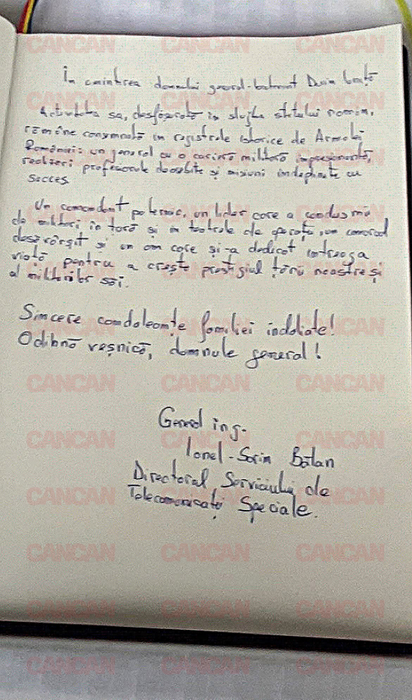 În amintirea domnului general-locotenent Dorin Ioniță
Activitatea sa, desfășurată în slujba statului român,
rămâne consemnată în registrele istorice ale Armatei
României: un general cu o carieră militară impresionantă,
realizări profesionale deosebite și misiuni îndeplinite cu
succes.
Un comandant puternic, un lider care a condus mii
de militari în țară și în teatrele de operații, un camarad
desăvârșit și un om care și-a dedicat întreaga
viață pentru a crește prestigiul țării noastre și
al militarilor săi.
Sincere condoleanțe familiei îndoliate!
Odihnă veșnică, domnule general!
General ing.
Ionel-Sorin Bălan
Directorul Serviciului de
Telecomunicații Speciale.
CANCAN